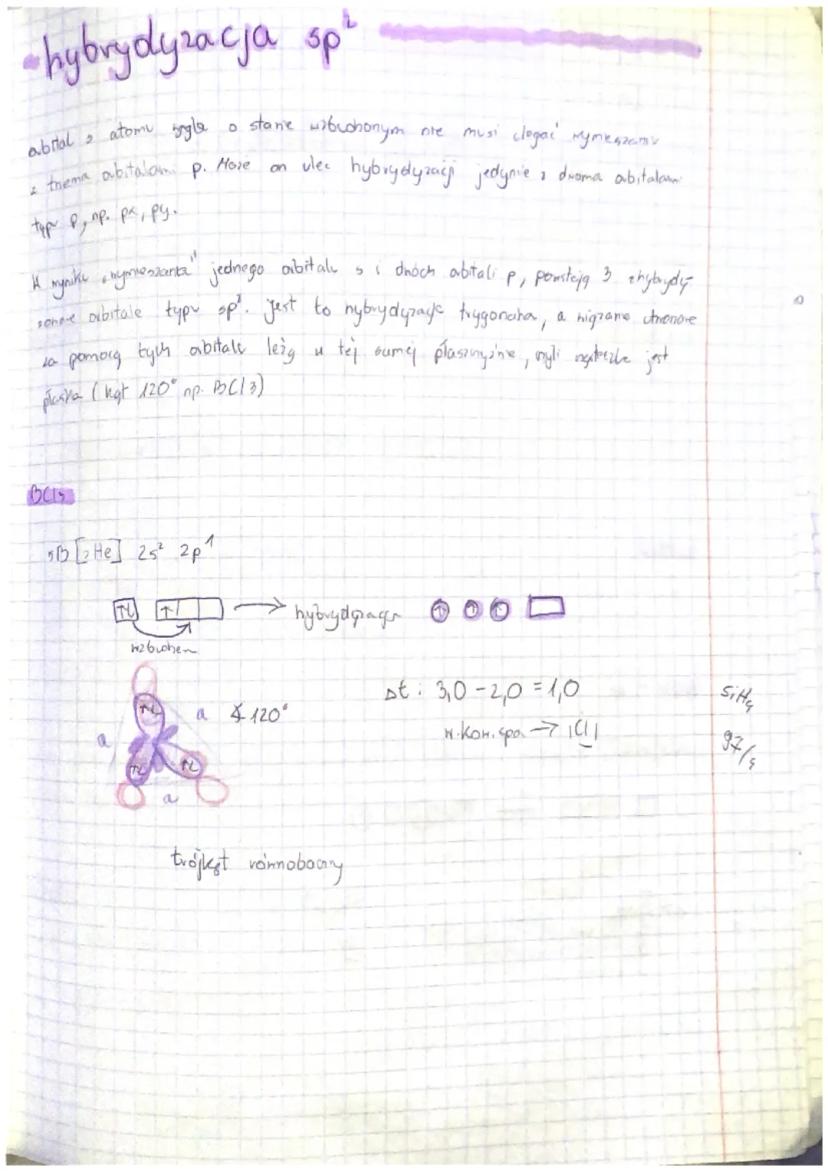 hybrydyzacja sp²
orbital s atomu węgla o stanie wzbudzonym nie musi ulegać wymieszaniu
z trzema orbitalami p. Może on ulec hybrydyzacji jedynie z dwoma orbitalami
typu p, np. px, py.
W wyniku „wymieszania" jednego orbitalu s i dwóch orbitali p, powstają 3 zhybrydy-
zowane orbitale typu sp². Jest to hybrydyzacja trygonalna, a wiązania utworzone
za pomocą tych orbitali leżą w tej samej płaszczyźnie, czyli cząsteczka jest
płaska (kąt 120° np. BCl3)
BCl3
5B [2He] 2s² 2p¹
↑↓ ↑ → hybrydyzacja ↑ ↑ ↑
wzbudzen
↑↓ a ∡ 120°
a ↑↓ ↑↓
a
Δt: 3,0 - 2,0 = 1,0
w. kow. spo. → |Cl|
SiH4
97/5
trójkąt równoboczny